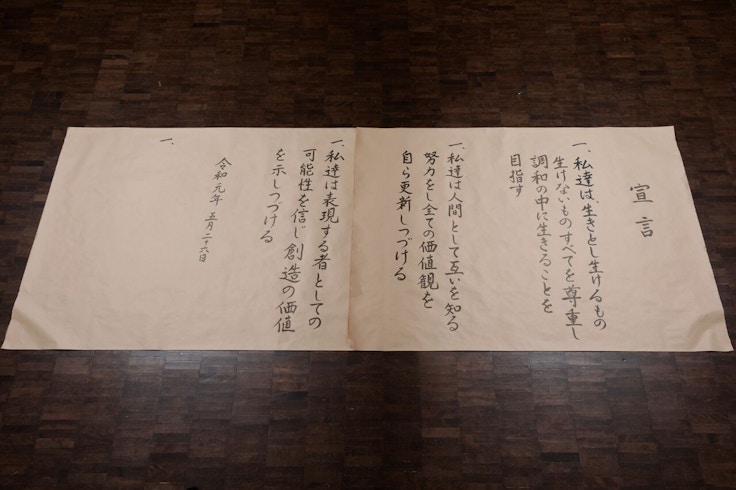 宣言
一、私達は、生きとし生けるもの
生けないものすべてを尊重し
調和の中に生きることを
目指す
一、私達は人間として互いを知る
努力をし全ての価値観を
自ら更新しつづける
一、私達は表現する者としての
可能性を信じ創造の価値
を示しつづける
令和元年 五月二十六日
一、